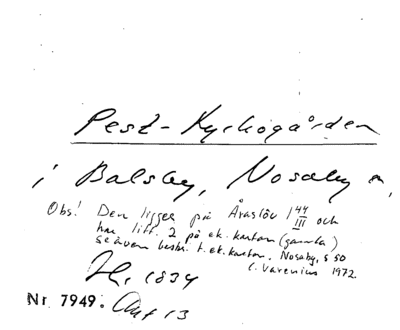 Pest-Kyrkogården
i Balsby, Nosaby n,
Obs! Den ligger på Åraslöv 1 44/III och
har litt. 2 på ek. kartan (gamla)
se även beskr. t. ek. kartan, Nosaby, s 50
C. Varenius 1972.
1834
Nr 7949. 13